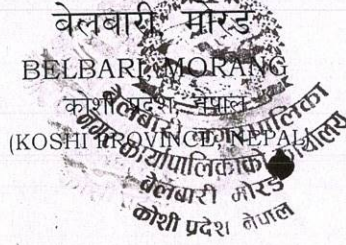 बेलबारी, मोरङ
BELBARI, MORANG
कोशी प्रदेश, नेपाल
(KOSHI PROVINCE, NEPAL)
बेलबारी नगरपालिका
नगर कार्यपालिकाको कार्यालय
बेलबारी मोरङ
कोशी प्रदेश नेपाल